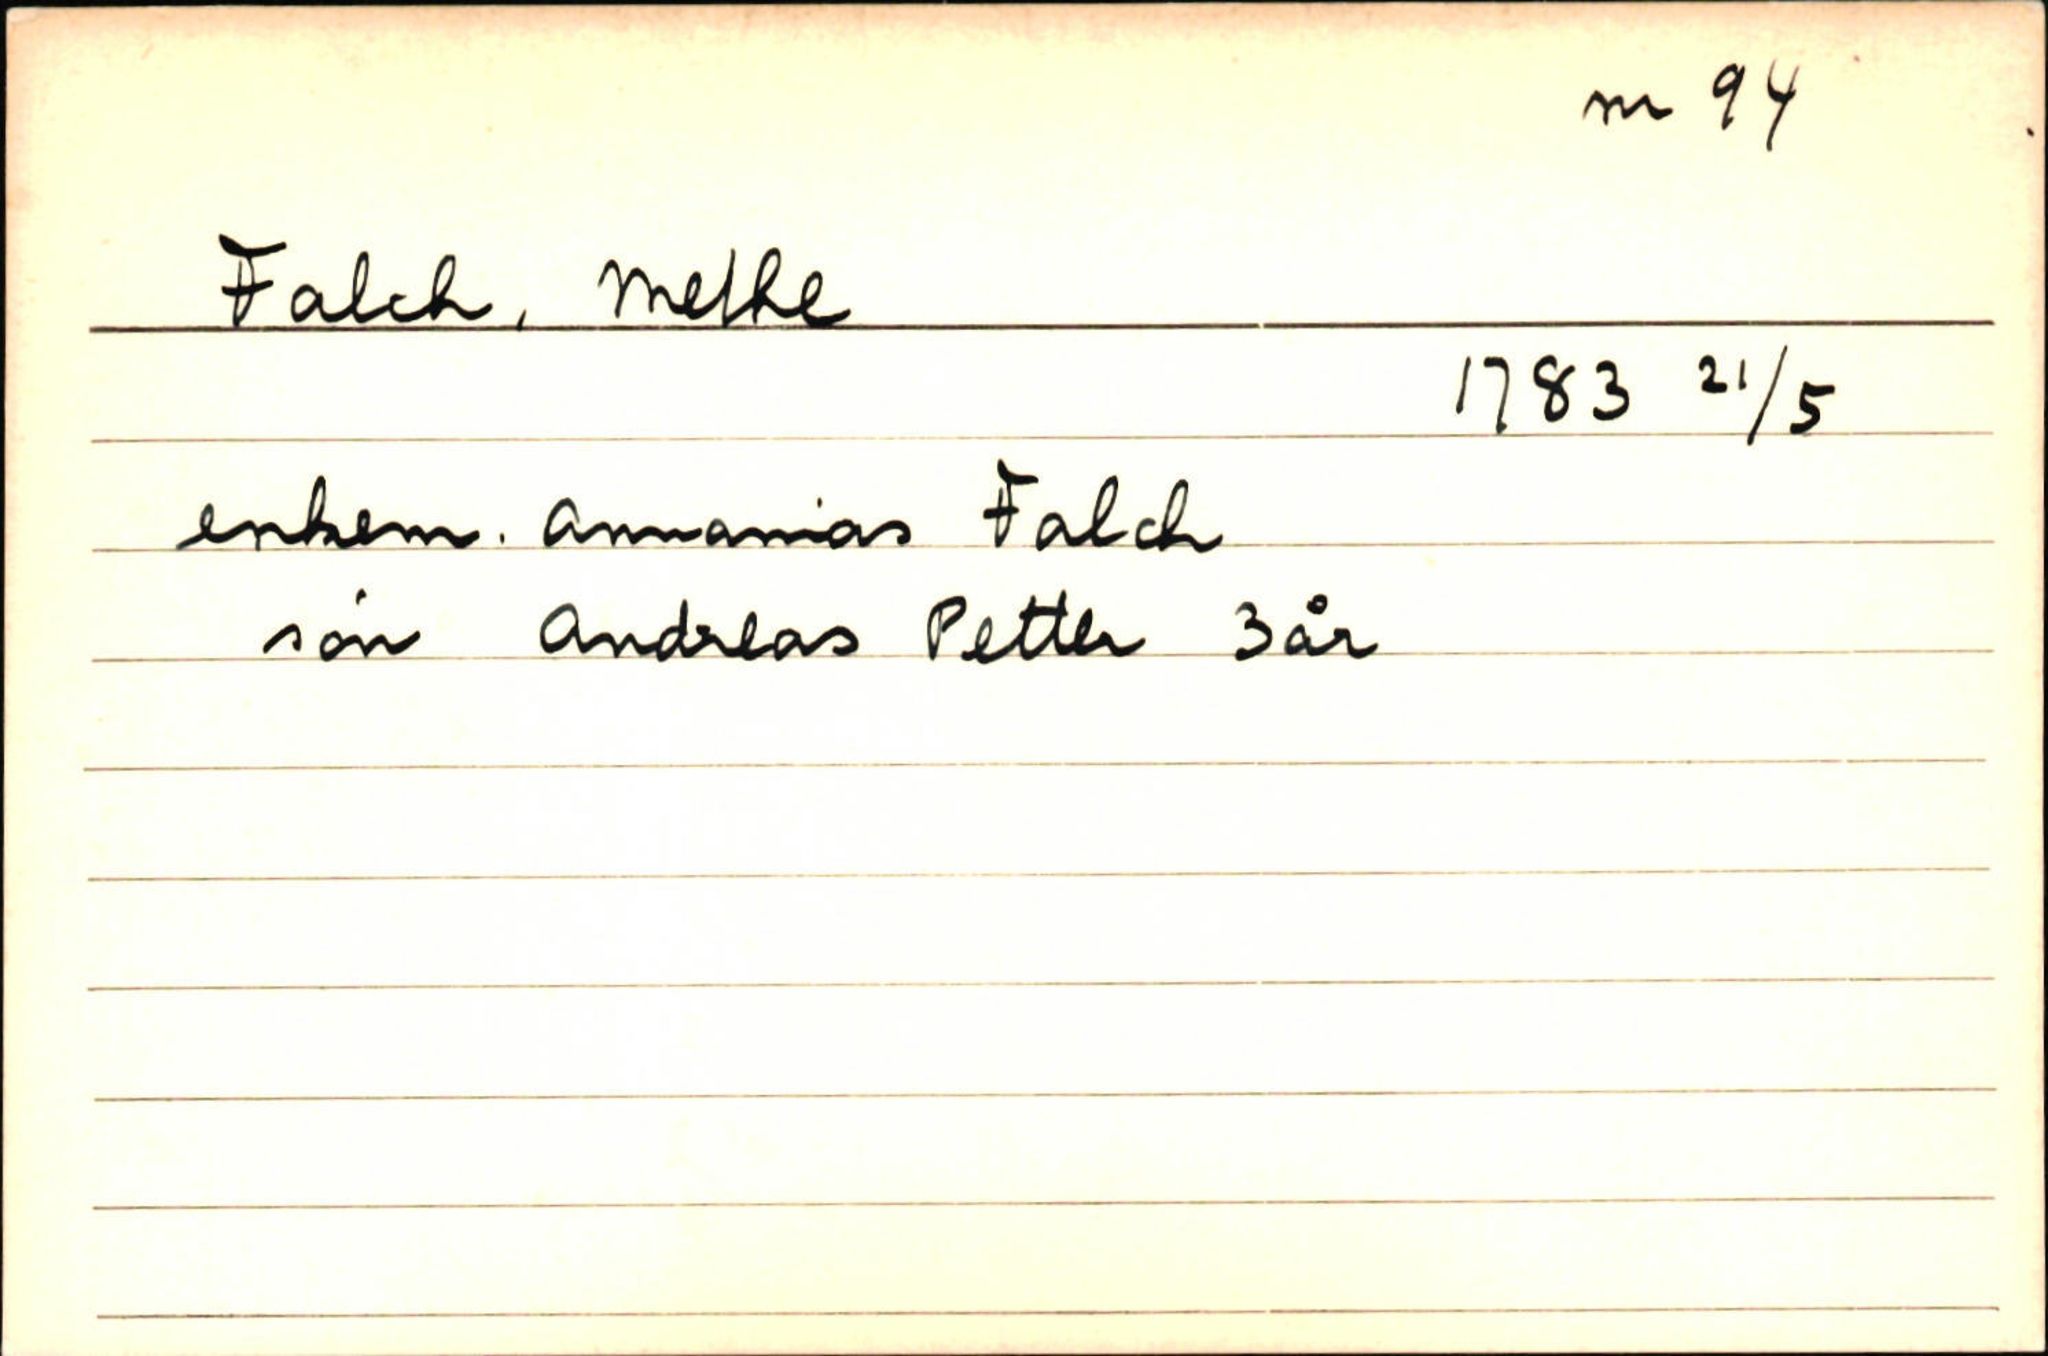 nr 94
Falch, Methe
1783 21/5
enkem. Annanias Falch
søn Andreas Petter 3 år